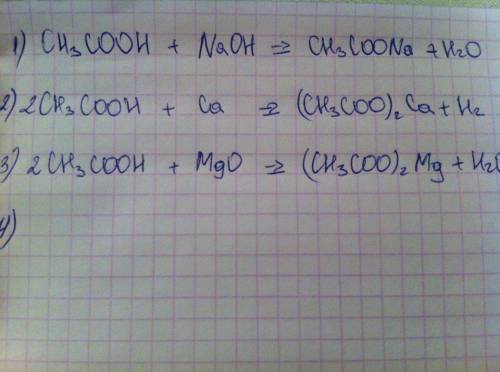 1) CH₃COOH + NaOH ⇒ CH₃COONa + H₂O
2) 2CH₃COOH + Ca ⇒ (CH₃COO)₂Ca + H₂
3) 2CH₃COOH + MgO ⇒ (CH₃COO)₂Mg + H₂O
4)